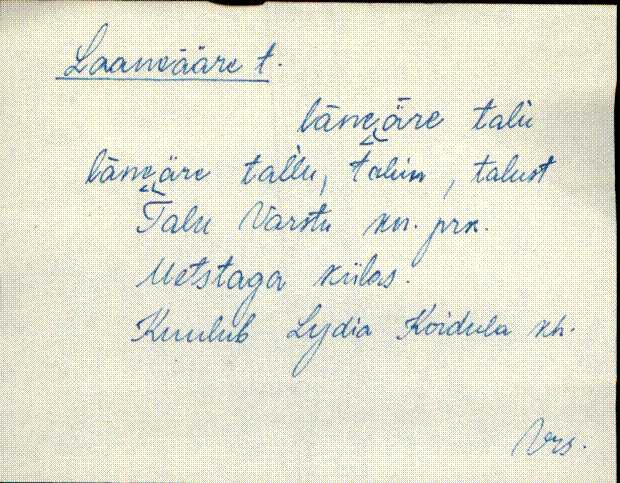 Laaneääre t.
lāne͔äre talu
lāne͔äre tal̀lu, talun, talust
Talu Varstu kn. prk.
Metstaga külas.
Kuulub Lydia Koidula kh.
Vrs.